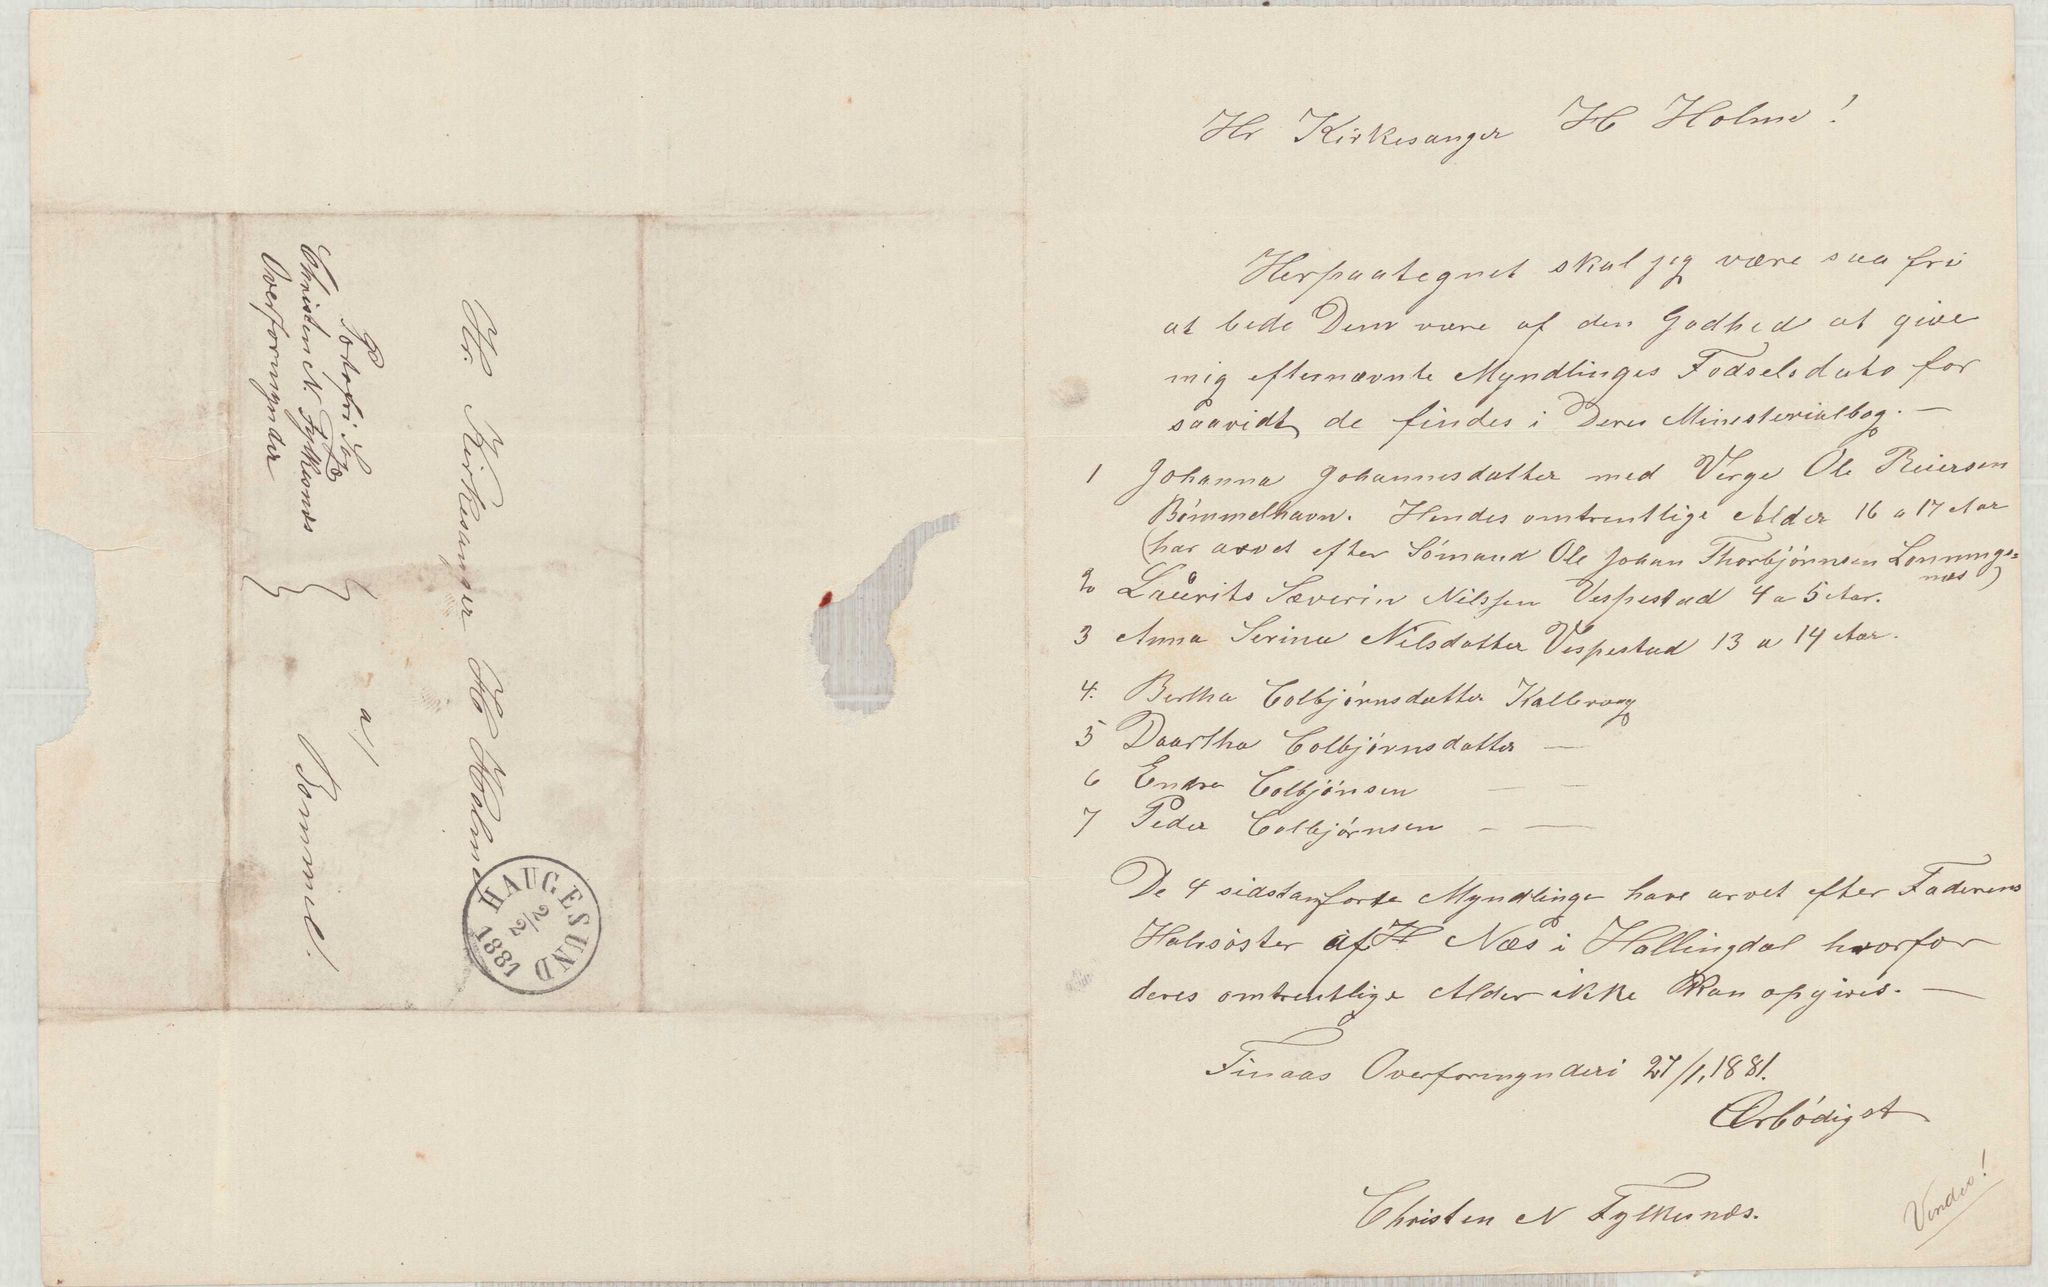 Hr Kirkesanger H Holme!
Herpaategnet skal jeg være saa fri
at bede Dem være af den Godhed at give
mig efternævnte Myndlinges Fødselsdato for
saavidt de findes i Deres Ministerialbog. —
1 Johanna Johannesdatter med Verge Ole Reiersen
Bömmelhavn. Hendes omtrentlige Alder 16 a 17 Aar
(har arvet efter Sömand Ole Johan Thorbjörnsen Lonnings=
næs)
2 Laurits Sæverin Nilssen Vespestad 4 a 5 Aar.
3 Anna Serina Nilsdatter Vespestad 13 a 14 Aar.
4. Bertha Colbjörnsdatter Kallevaag
5 Daartha Colbjörnsdatter —
6 Endre Colbjönsen — —
7 Peder Colbjörnsen — —
De 4 sidstanforte Myndlinge have arvet efter Faderens
Halvsöster af H Næs i Hallingdal hvorfor
deres omtrentlige Alder ikke kan opgives. —
Finaas Overformynderi 27/1, 1881.
Ærbödigst
Christen N Fylkesnæs.
Vendes!
Hr. Kirkesanger H Holme
a/ Bommel.
Portofri Sag
Christen N. Fylkesnæs
Overformynder
HAUGESUND
2/2
1881